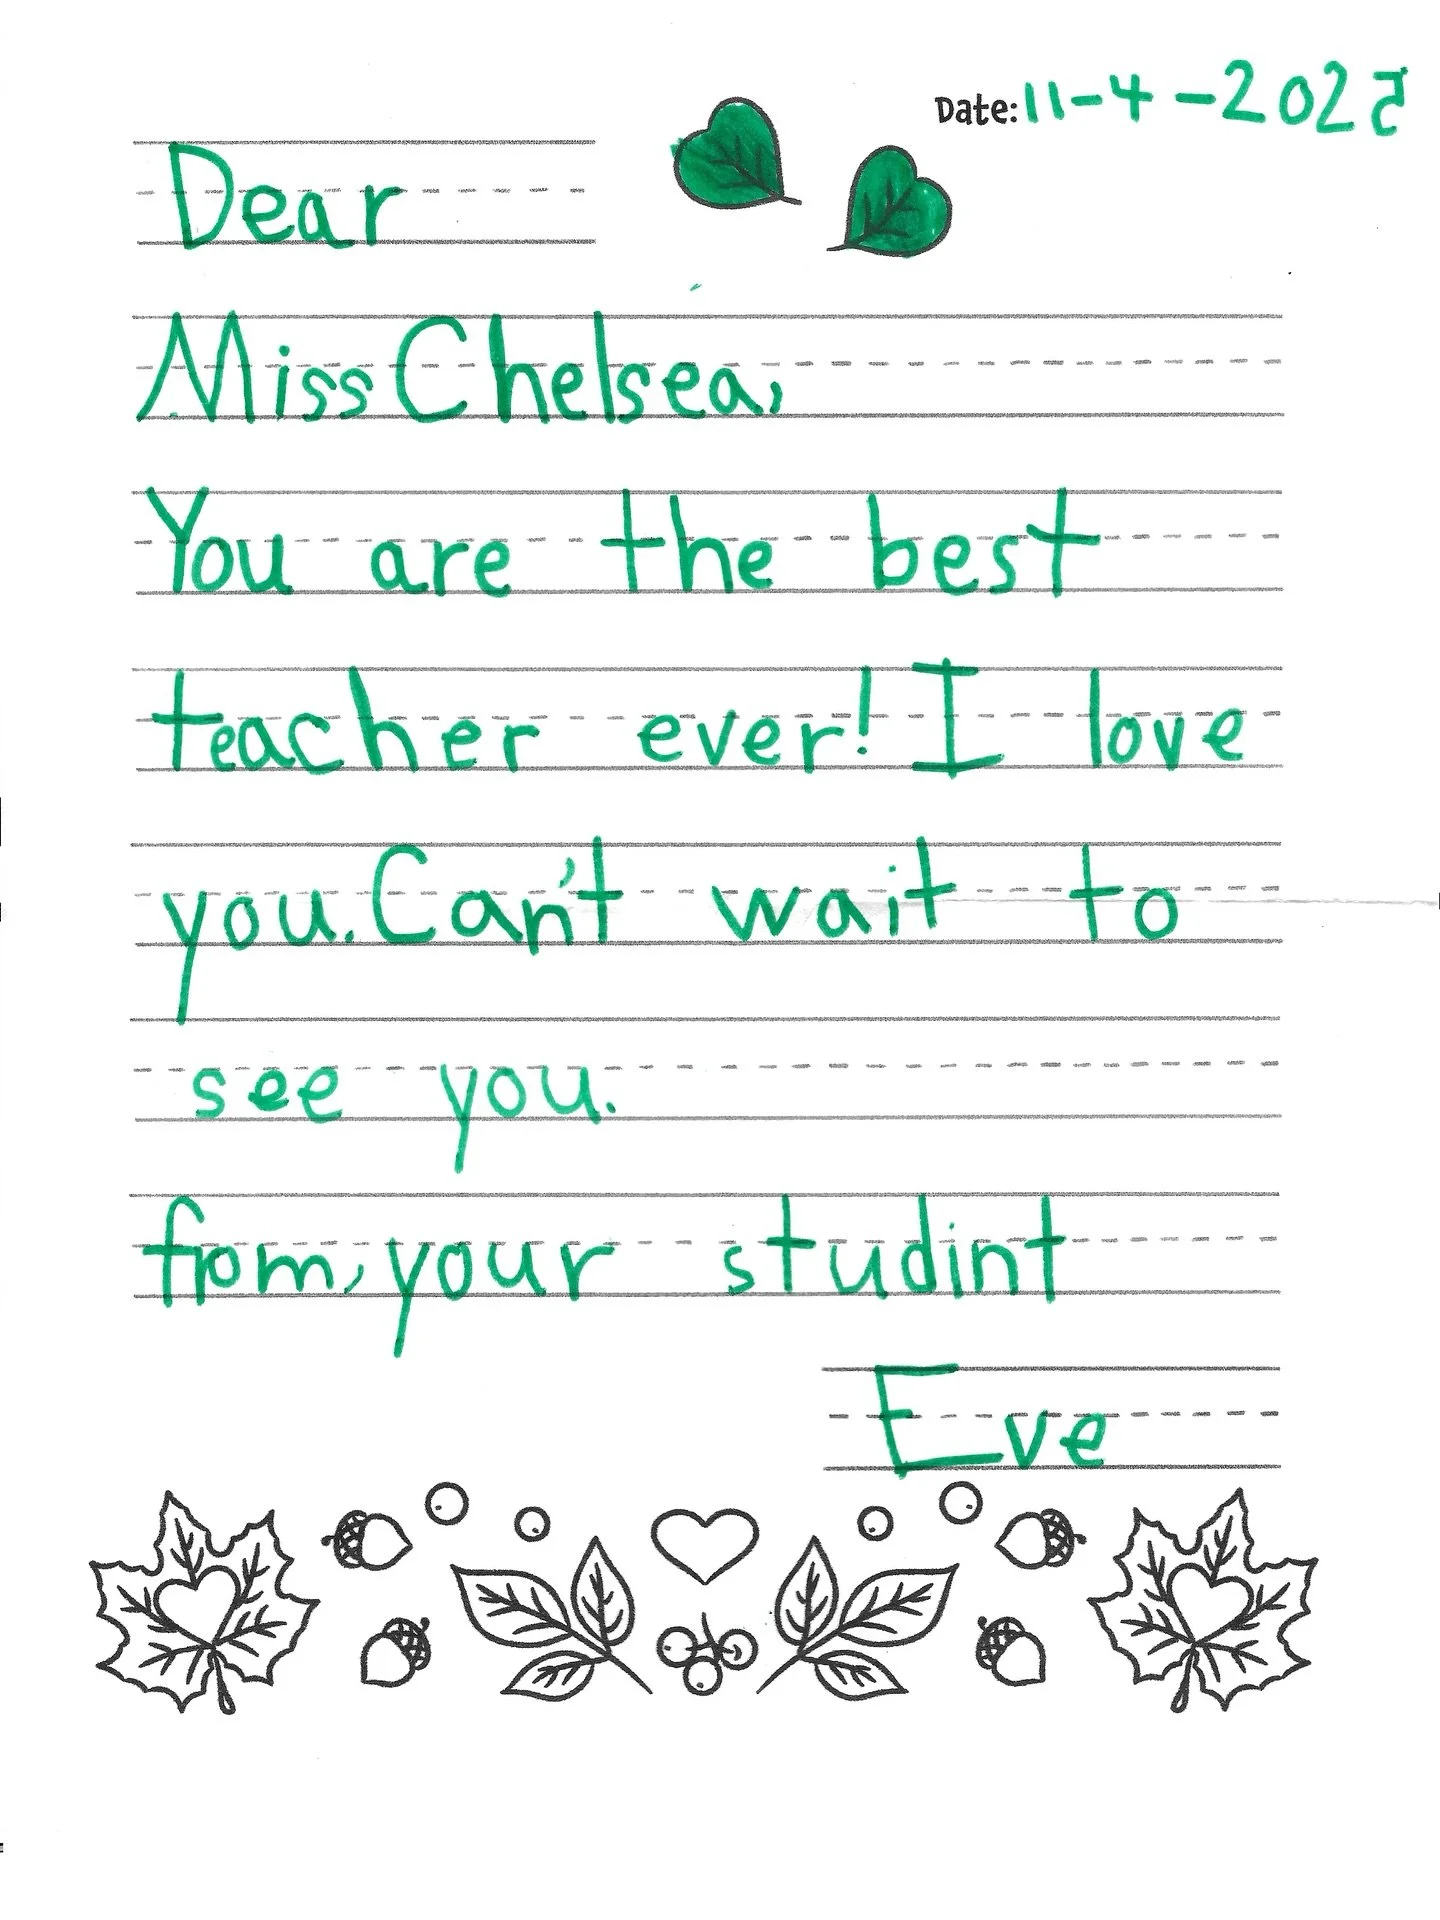 Date: 11-4-2025
Dear
Miss Chelsea,
You are the best
teacher ever! I love
you. Can't wait to
see you.
from, your studint
Eve